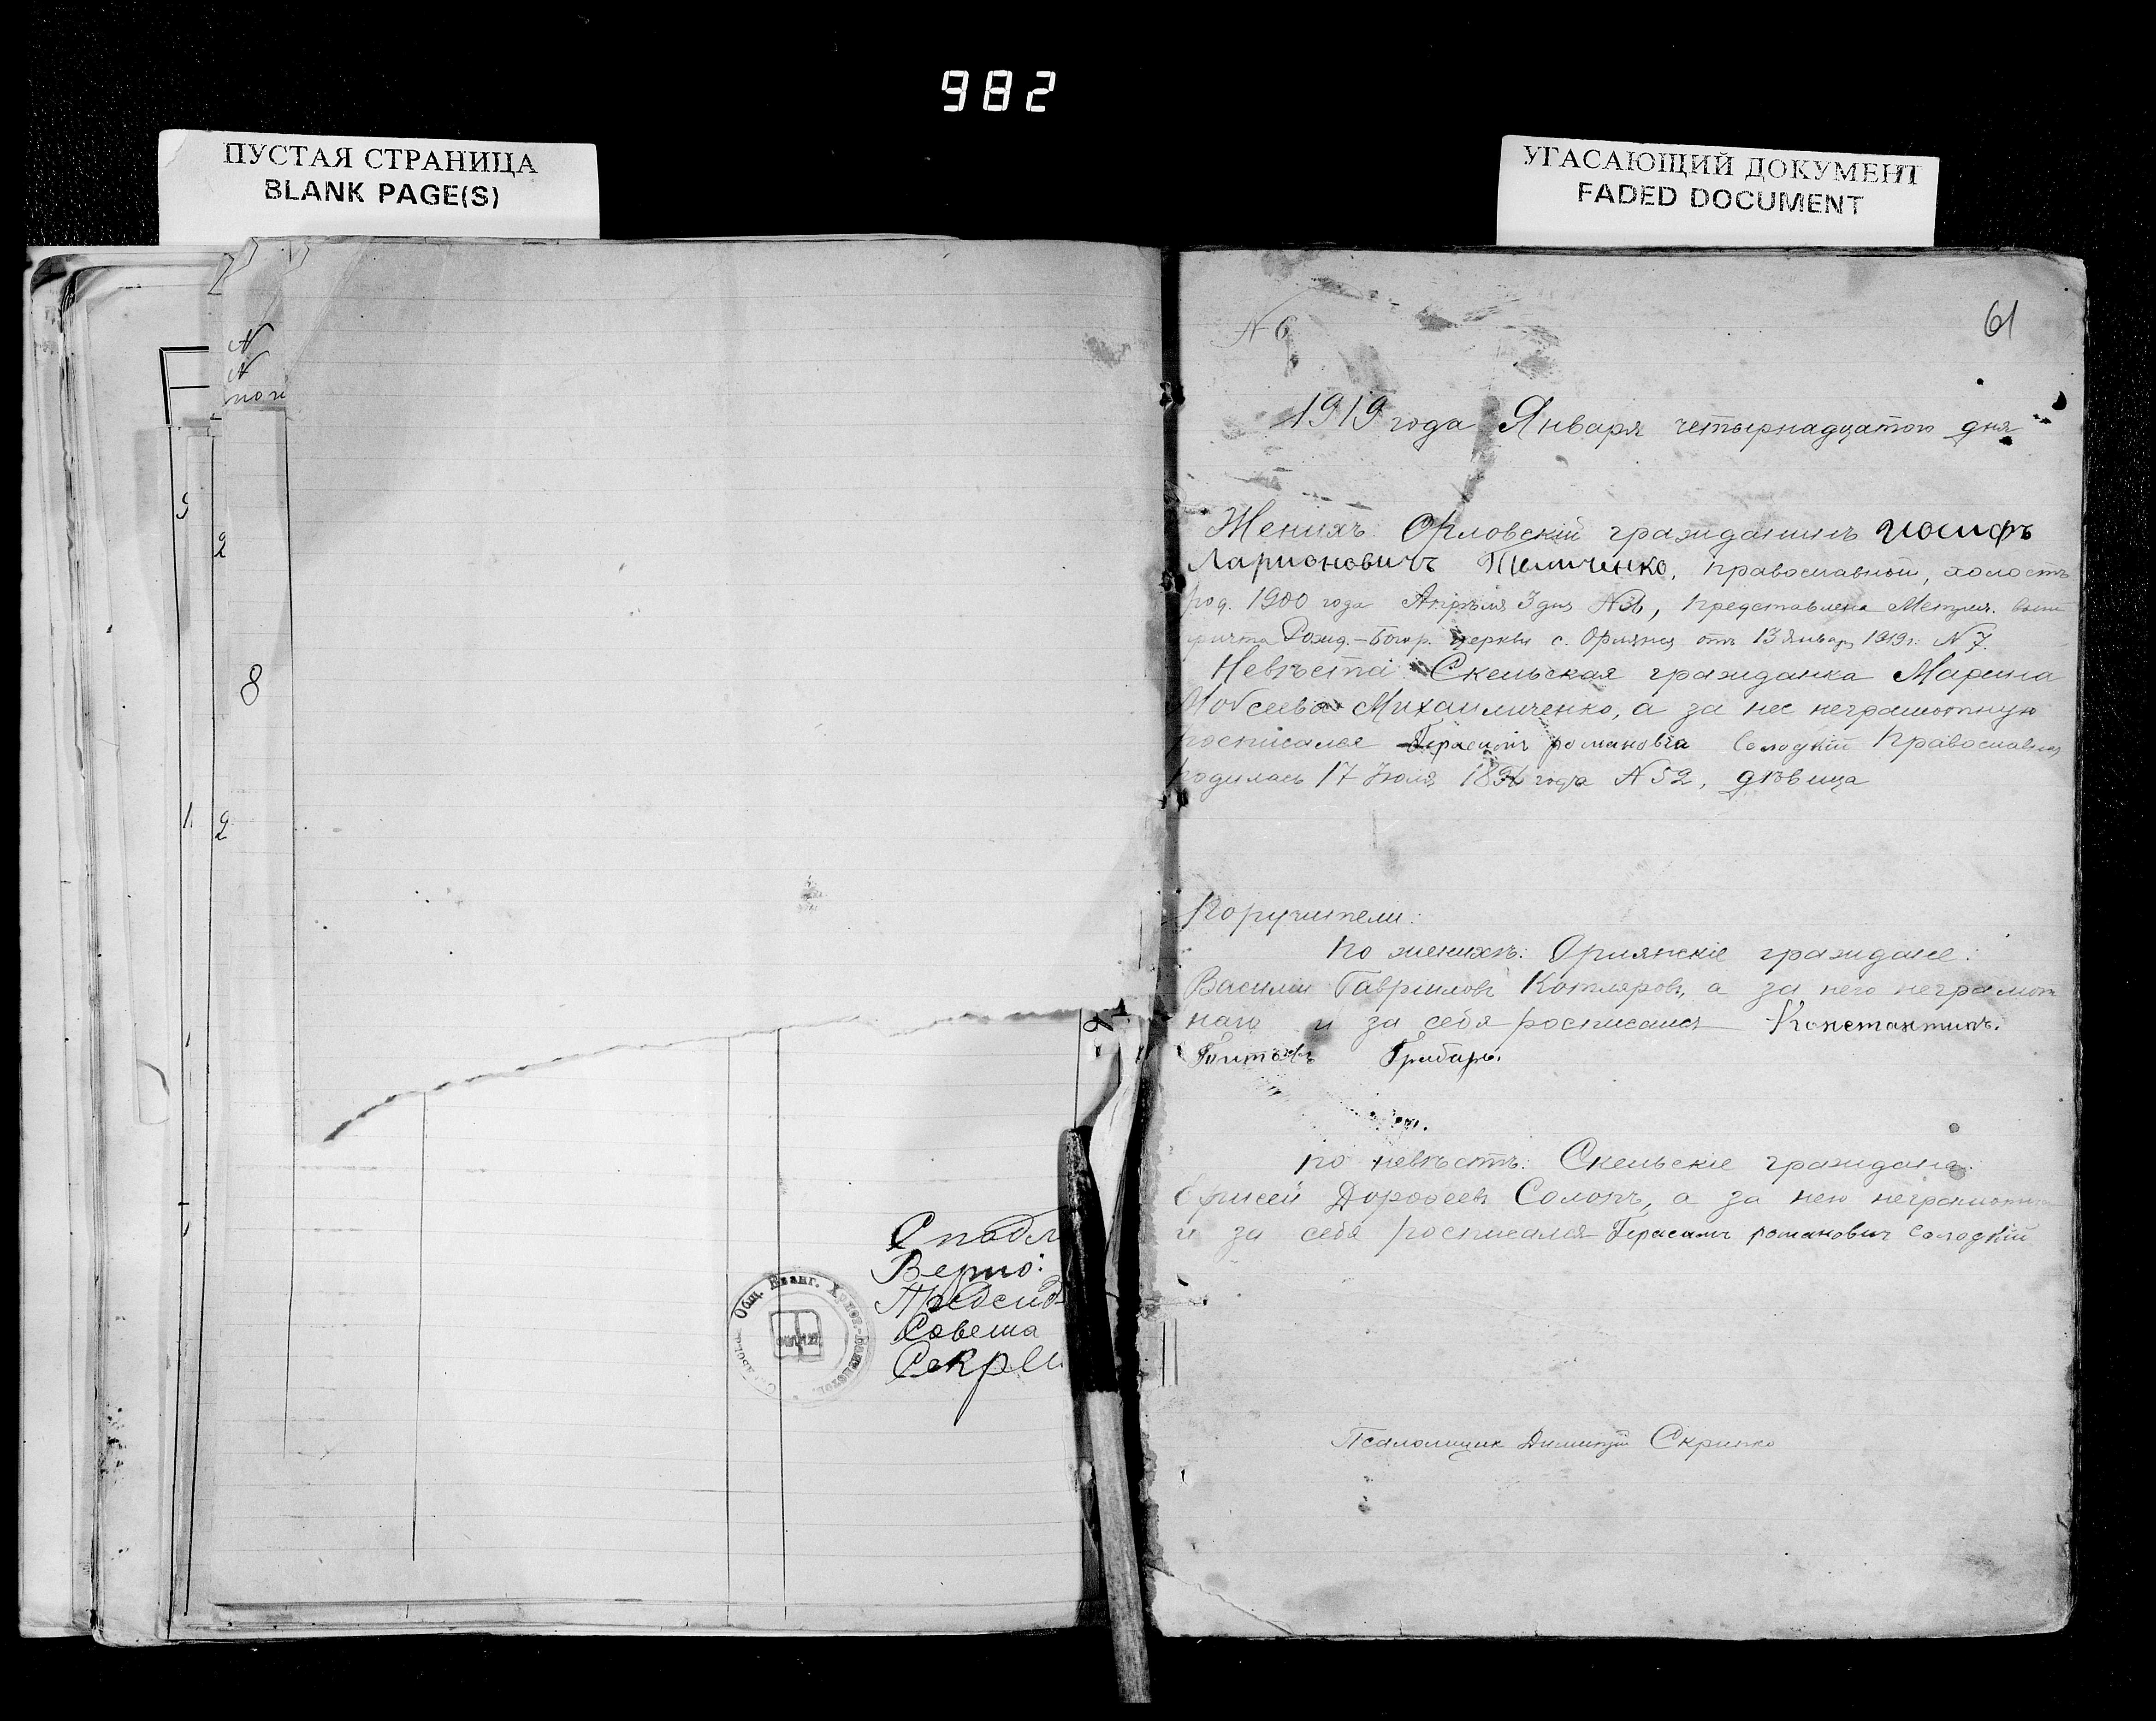 982
ПУСТАЯ СТРАНИЦА
BLANK PAGE(S)
УГАСАЮЩИЙ ДОКУМЕНТ
FADED DOCUMENT
N
N
8
2
2
Верно:
Совета
Общ. Еванг.
61
N 6
1919 года Января четырнадцатого дня
Женихъ: гражданинъ Иосифъ
Ларионовичъ православный, холостъ
род. 1900 года Апрѣля 3 дня представлена
Рожд.-Богор. церкви с. Орлянки отъ 13 Января 1919 г. N 7.
Невѣста: Скельская гражданка Марина
Моѵсеева Михайличенко, а за нее неграмотную
росписался Герасимъ романовича Солодкій Православная
родилась 17 Іюля года N 52, дѣвица
Поручители:
по женихѣ: Орлянскіе граждане:
Василий Гавриловъ Котляровъ, а за него неграмот
наго и за себя росписался Константинъ
по невѣстѣ: Скельскіе граждане:
Дороѳеевъ Солопъ, а за него неграмотнаго
и за себя росписался Герасимъ романович Солодкій
Псаломщик Димитрій Скрипко